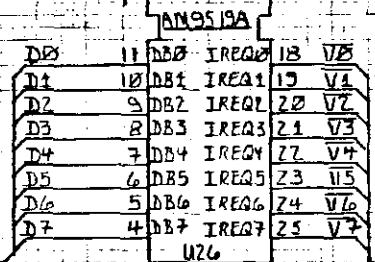 AM9519A
DØ 11 DBØ IREQØ 18 V̅Ø̅
D1 10 DB1 IREQ1 19 V̅1̅
D2 9 DB2 IREQ2 20 V̅2̅
D3 8 DB3 IREQ3 21 V̅3̅
D4 7 DB4 IREQ4 22 V̅4̅
D5 6 DB5 IREQ5 23 V̅5̅
D6 5 DB6 IREQ6 24 V̅6̅
D7 4 DB7 IREQ7 25 V̅7̅
U26